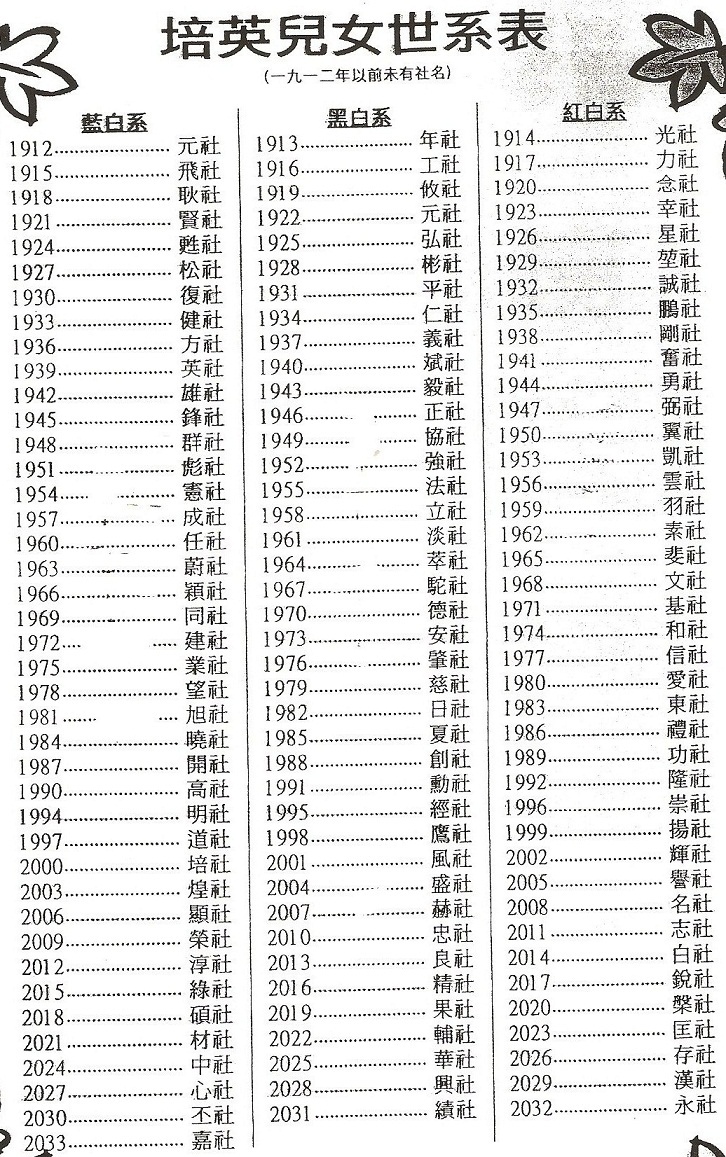 培英兒女世系表
(一九一二年以前未有社名)
藍白系
1912 元社
1915 飛社
1918 耿社
1921 賢社
1924 甦社
1927 松社
1930 復社
1933 健社
1936 方社
1939 英社
1942 雄社
1945 鋒社
1948 群社
1951 彪社
1954 憲社
1957 成社
1960 任社
1963 蔚社
1966 穎社
1969 同社
1972 建社
1975 業社
1978 望社
1981 旭社
1984 曉社
1987 開社
1990 高社
1994 明社
1997 道社
2000 培社
2003 煌社
2006 顯社
2009 榮社
2012 淳社
2015 綠社
2018 碩社
2021 材社
2024 中社
2027 心社
2030 丕社
2033 嘉社
黑白系
1913 年社
1916 工社
1919 攸社
1922 元社
1925 弘社
1928 彬社
1931 平社
1934 仁社
1937 義社
1940 斌社
1943 毅社
1946 正社
1949 協社
1952 強社
1955 法社
1958 立社
1961 淡社
1964 萃社
1967 駝社
1970 德社
1973 安社
1976 肇社
1979 慈社
1982 日社
1985 夏社
1988 創社
1991 勳社
1995 經社
1998 鷹社
2001 風社
2004 盛社
2007 赫社
2010 忠社
2013 良社
2016 精社
2019 果社
2022 輔社
2025 華社
2028 興社
2031 績社
紅白系
1914 光社
1917 力社
1920 念社
1923 幸社
1926 星社
1929 堃社
1932 誠社
1935 鵬社
1938 剛社
1941 奮社
1944 勇社
1947 弼社
1950 翼社
1953 凱社
1956 雲社
1959 羽社
1962 素社
1965 斐社
1968 文社
1971 基社
1974 和社
1977 信社
1980 愛社
1983 東社
1986 禮社
1989 功社
1992 隆社
1996 崇社
1999 揚社
2002 輝社
2005 譽社
2008 名社
2011 志社
2014 白社
2017 銳社
2020 槃社
2023 匡社
2026 存社
2029 漢社
2032 永社